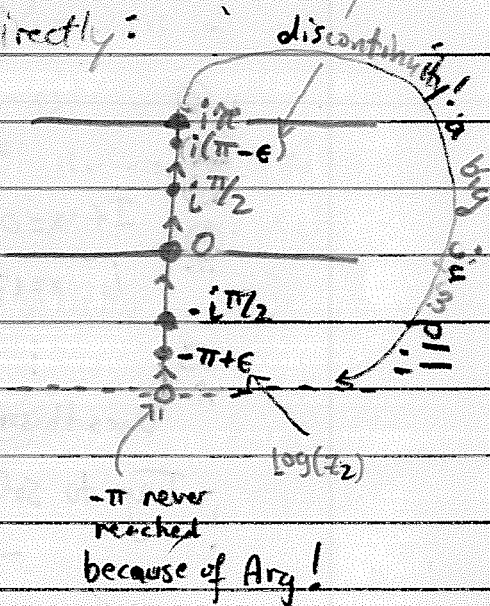 irectly:
discontinuity!
iπ
i(π-ε)
i π/2
0
-i π/2
-π+ε
Log(z₂)
-π never
reached
because of Arg!